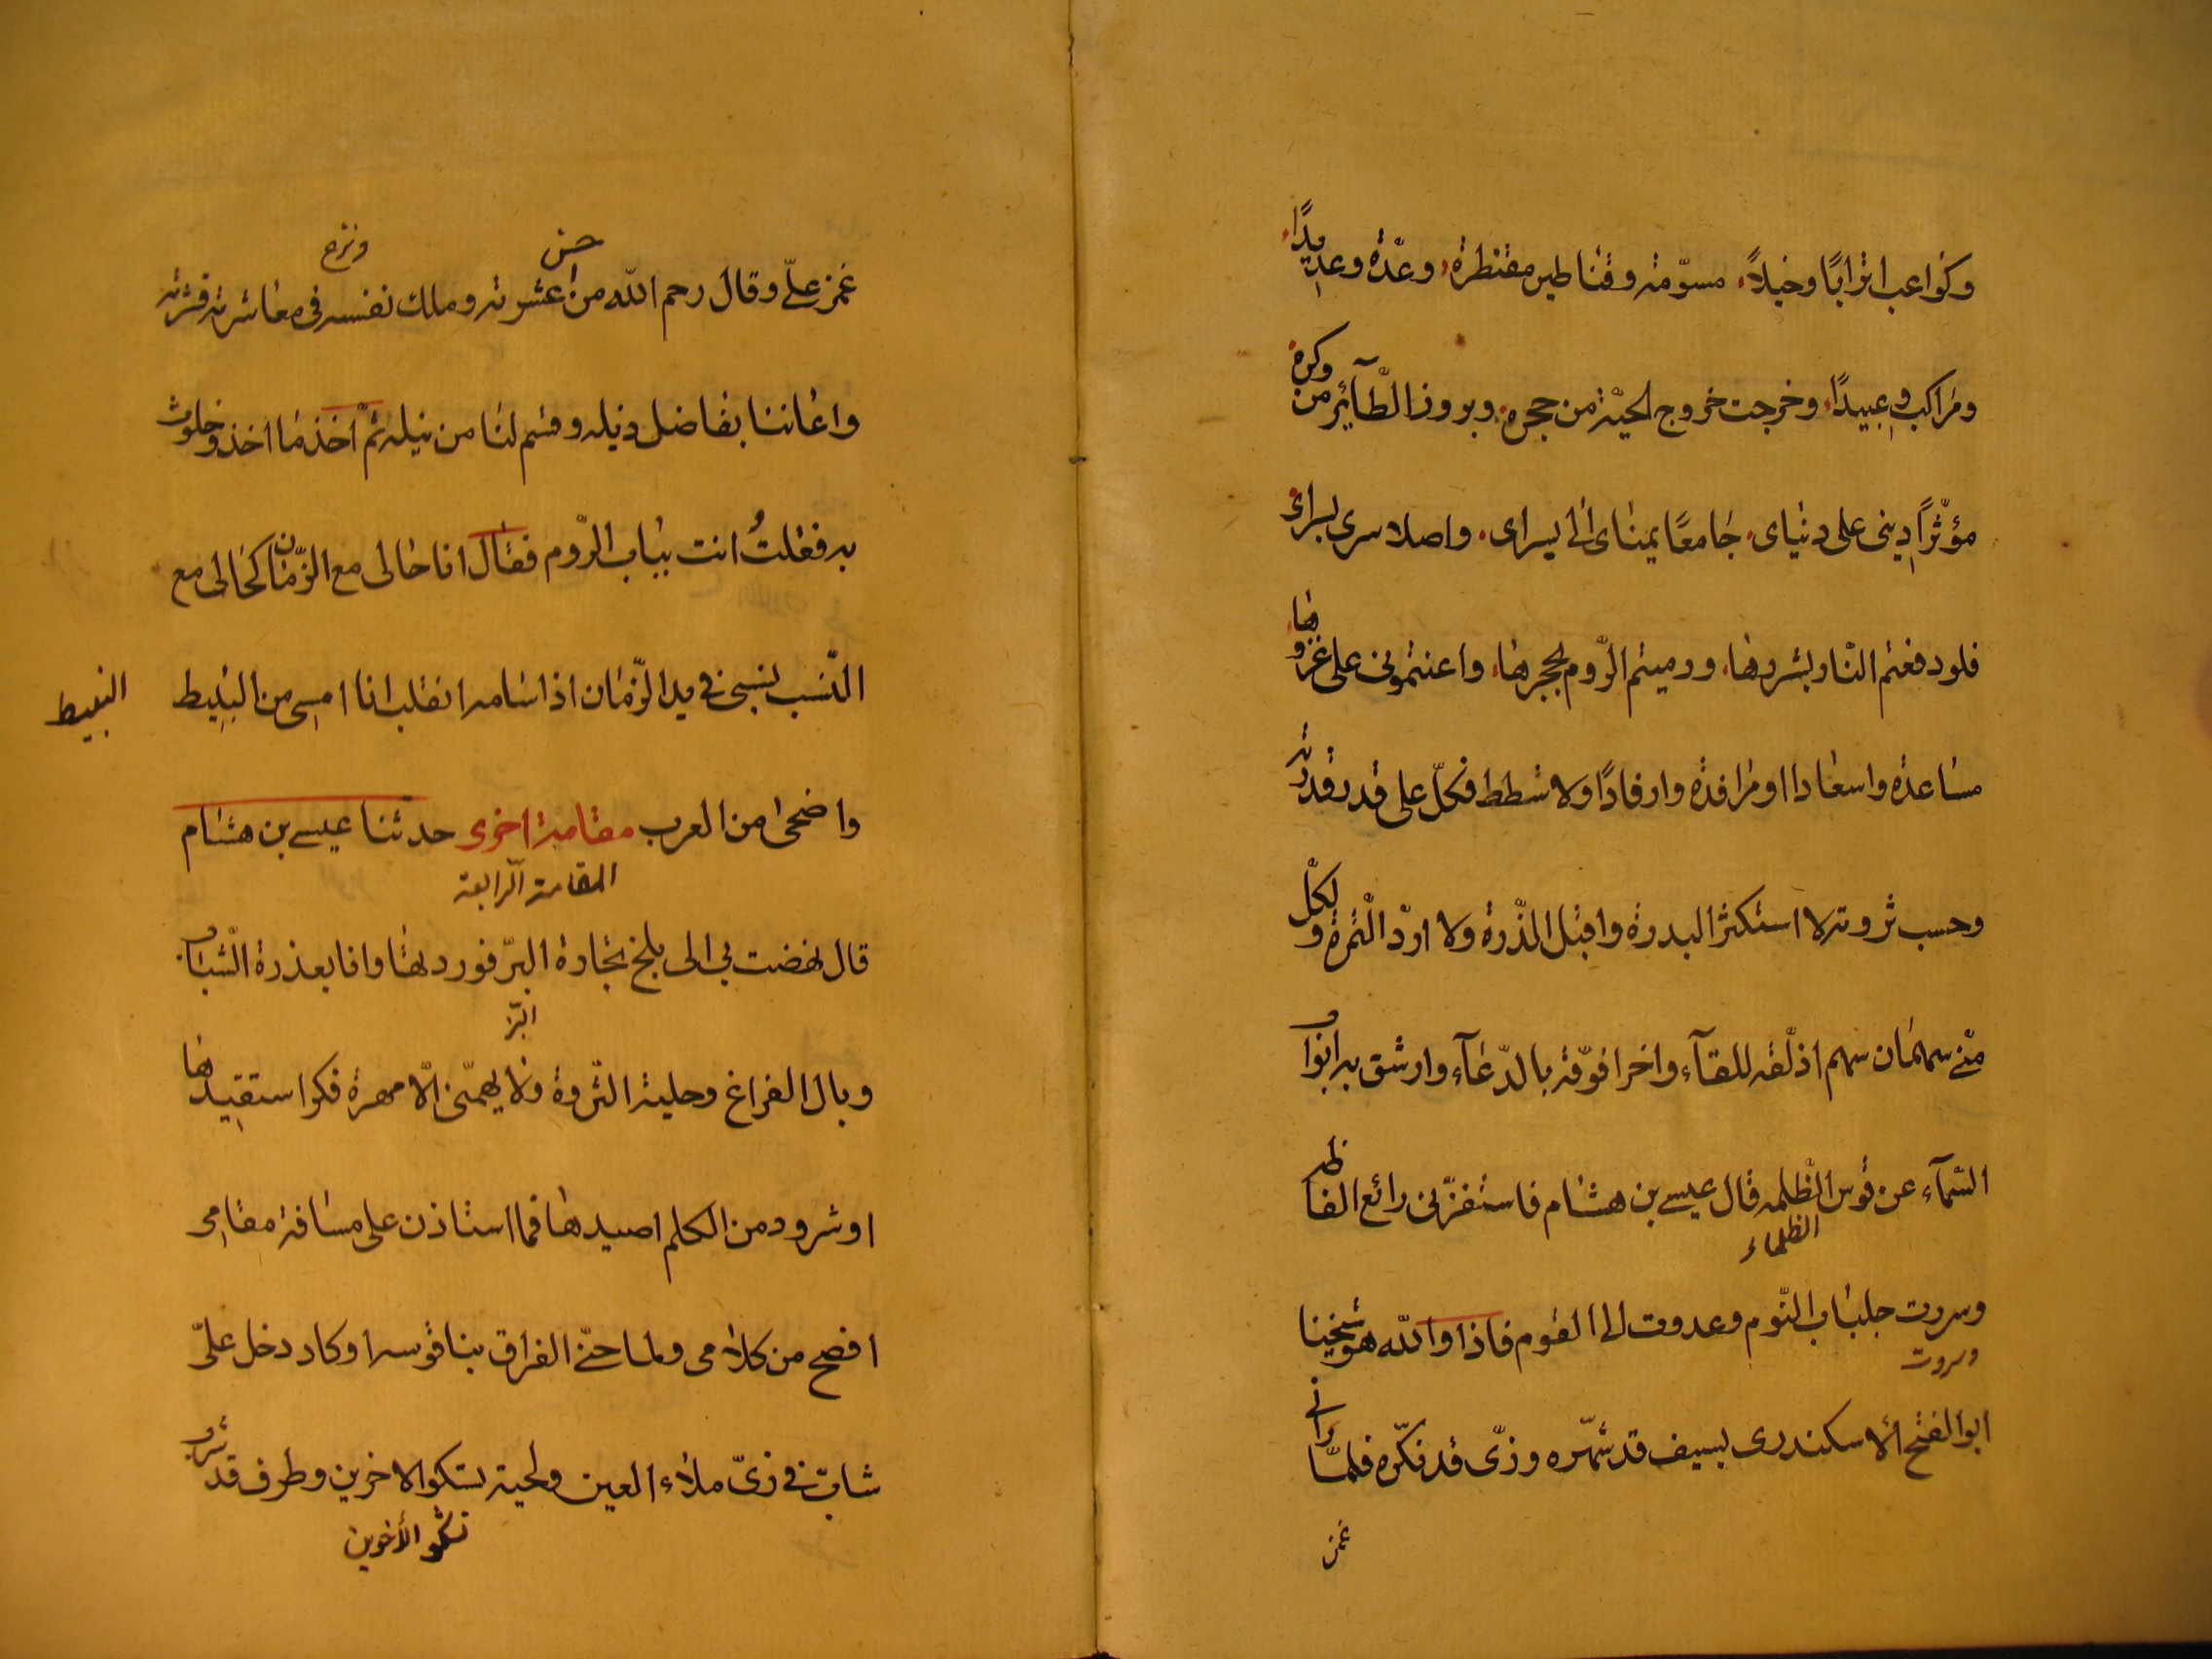 وكواعب اترابًا وخيلاً مسوّمة وقناطير مقنطرة وعدّة وعديدًا
ومراكب وعبيدًا وخرجت خروج الحيّة من جحره وبروز الطّآئر من وكره
مؤثرًا ديني على دنياى جامعًا يمناى الى يسراى واصلا سرى بسراى
فلو دفعتم النّار بشررها ورميتم الرّوم بحجرها واعنتمونى على غزوها
مساعدة واسعادا او مرافدة وارفادًا ولا شطط فكلّ على قدر قدرته
وحسب ثروته لا استكثر البدرة واقبل الذّرة ولا اردّ التّمرة ولكلّ
منّي سهمان سهم اذلّقه للقآء واخر افوّقه بالدّعآء وارشق به ابواب
السّمآء عن قوس الظّلمه قال عيسى بن هشام فاستفزّنى رائع الفاظه
الظلماء
وسروت جلباب النّوم وعدوت الى القوم فاذا والله هو شيخنا
وسروت
ابو الفتح الاسكندرى بسيف قد شهّره وزىّ قد نكّره فلمّا رانى
غمز
حسن
ونزع
غمز علىّ وقال رحم الله من احسن عشرته وملك نفسه فى معاشرته قشرته
واعاننا بفاضل ذيله وقسم لنا من نيله ثمّ اخذ ما اخذ وخلوت
به فقلتُ انت بباب الرّوم فقال انا حالى مع الزّمان كحالى مع
النّسب نسبى في يد الزّمان اذا سامه انقلب انا امسى من النبيط
النبيط
واضحى من العرب مقامة اخرى حدثنا عيسى بن هشام
المقامة الرابعة
قال نهضت بى الى بلخ تجارة البرّ فوردتها وانا بعذرة الشّباب
البزّ
وبال الفراغ وحلية الثّروة ولا يهمّنى الّا مهرة فكر استقيدها
او شرود من الكلم اصيدها فما استاذن على مسافة مقامى
افصح من كلامى ولما حنّى الفراق بنا قوسه او كاد دخل علىّ
شابّ في زىّ ملاء العين ولحية تشكوا الاخرين وطرف قد شرب
تشكو الأخدعين